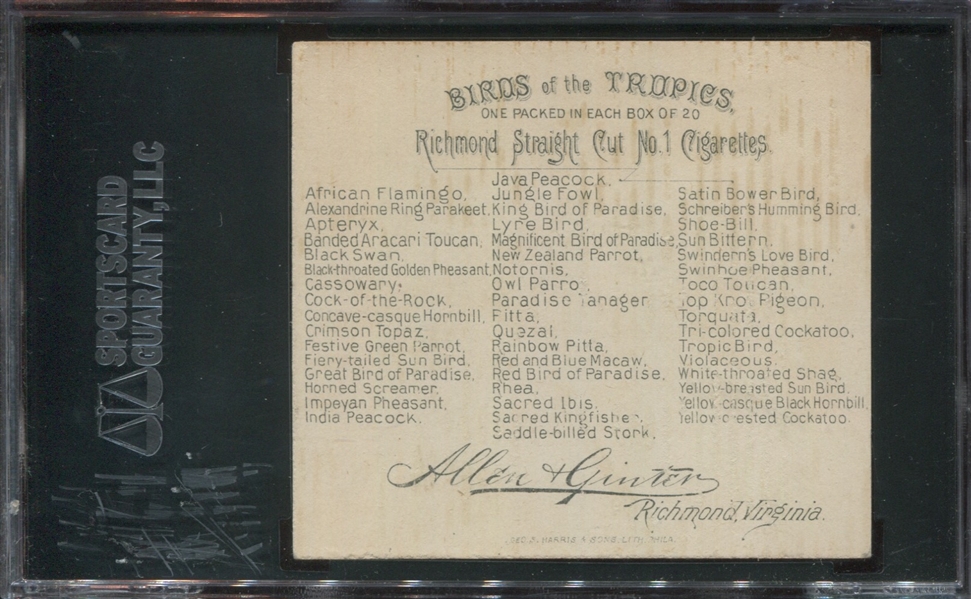 SPORTSCARD
GUARANTY, LLC
BIRDS of the TROPICS,
ONE PACKED IN EACH BOX OF 20
Richmond Straight Cut No.1 Cigarettes.
African Flamingo,
Alexandrine Ring Parakeet,
Apteryx,
Banded Aracari Toucan,
Black Swan,
Black-throated Golden Pheasant,
Cassowary,
Cock-of-the-Rock,
Concave-casque Hornbill,
Crimson Topaz,
Festive Green Parrot,
Fiery-tailed Sun Bird,
Great Bird of Paradise,
Horned Screamer,
Impeyan Pheasant,
India Peacock,
Java Peacock,
Jungle Fowl,
King Bird of Paradise,
Lyre Bird,
Magnificent Bird of Paradise,
New Zealand Parrot,
Notornis,
Owl Parrot
Paradise Tanager
Pitta,
Quezal,
Rainbow Pitta,
Red and Blue Macaw,
Red Bird of Paradise,
Rhea,
Sacred Ibis,
Sacred Kingfisher,
Saddle-billed Stork,
Satin Bower Bird,
Schreiber's Humming Bird,
Shoe-Bill,
Sun Bittern,
Swindern's Love Bird,
Swinhoe Pheasant,
Toco Toucan,
Top Knot Pigeon,
Torquata,
Tri-colored Cockatoo,
Tropic Bird,
Violaceous,
White-throated Shag,
Yellow-breasted Sun Bird,
Yellow-casque Black Hornbill,
Yellow-crested Cockatoo.
Allen & Ginter
Richmond, Virginia.
GEO. S. HARRIS & SONS, LITH. PHILA.